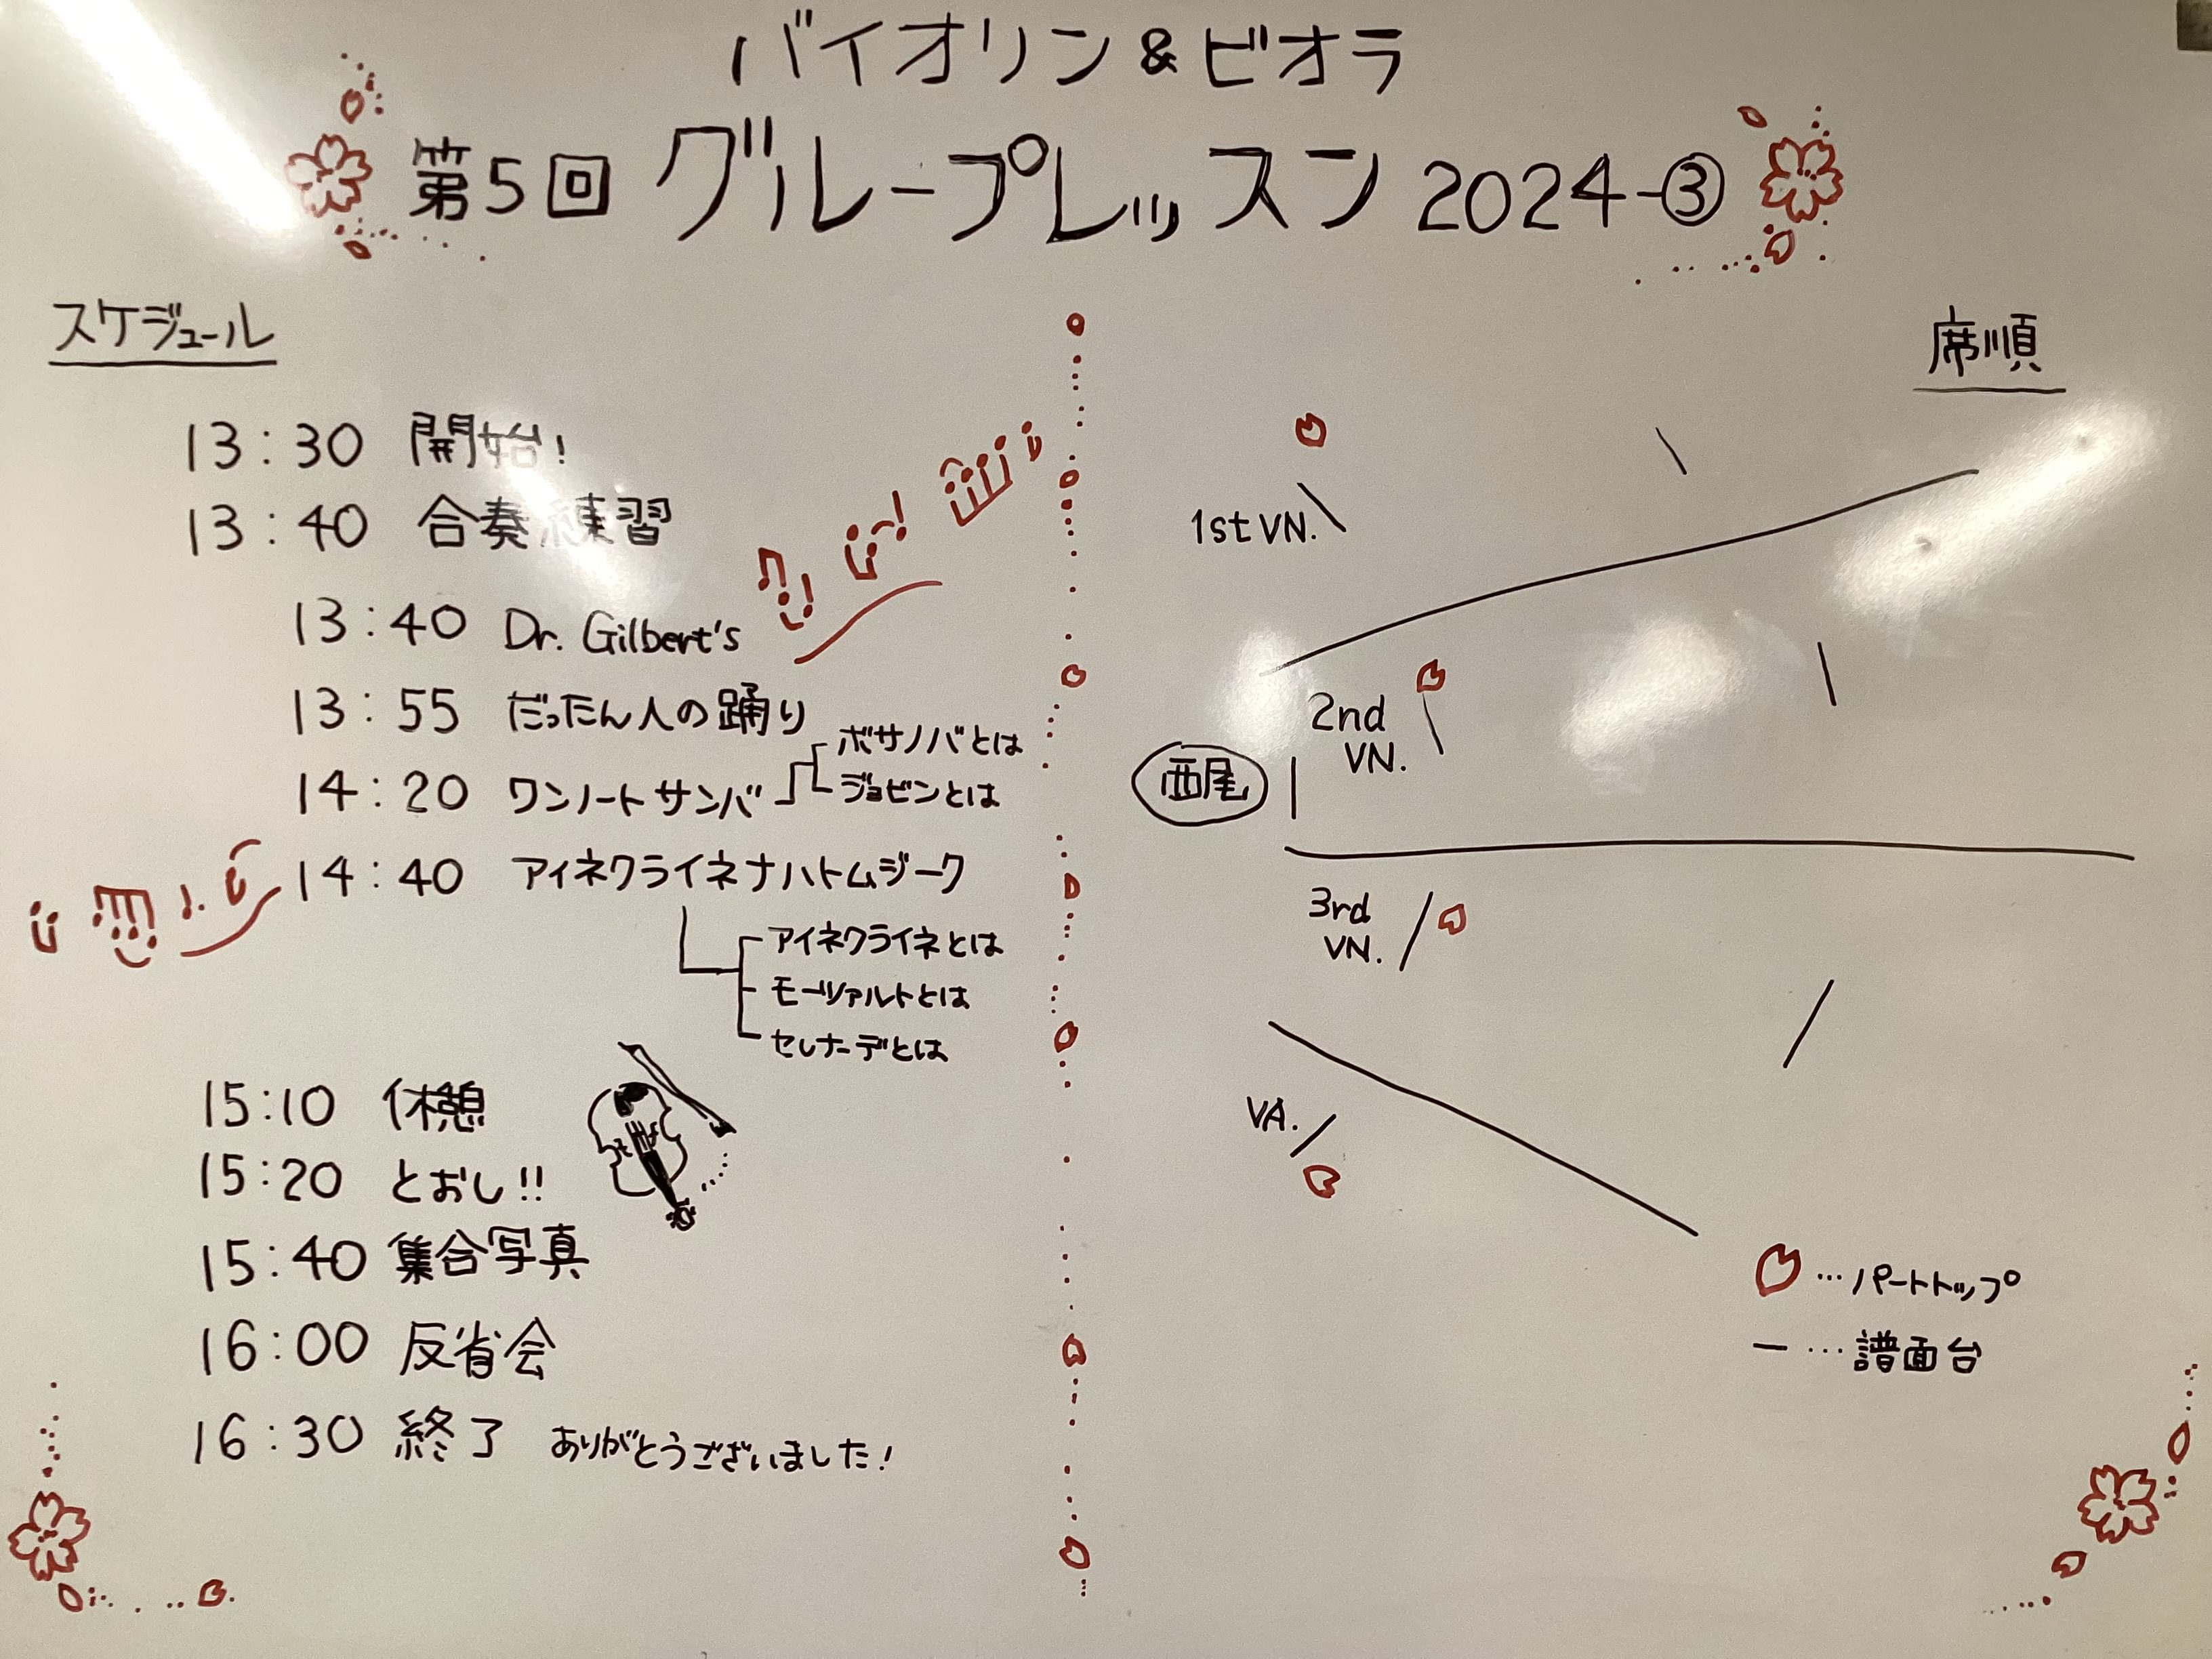 バイオリン&ビオラ
第5回 グループレッスン 2024-③
スケジュール
13:30 開始!
13:40 合奏練習
13:40 Dr. Gilbert's
13:55 だったん人の踊り
14:20 ワンノートサンバ
ボサノバとは
ジョビンとは
14:40 アイネクライネナハトムジーク
アイネクライネとは
モーツァルトとは
セレナーデとは
15:10 休憩
15:20 とおし!!
15:40 集合写真
16:00 反省会
16:30 終了 ありがとうございました!
席順
1st VN.
2nd
VN.
西尾
3rd
VN.
VA.
…パートトップ
ー…譜面台